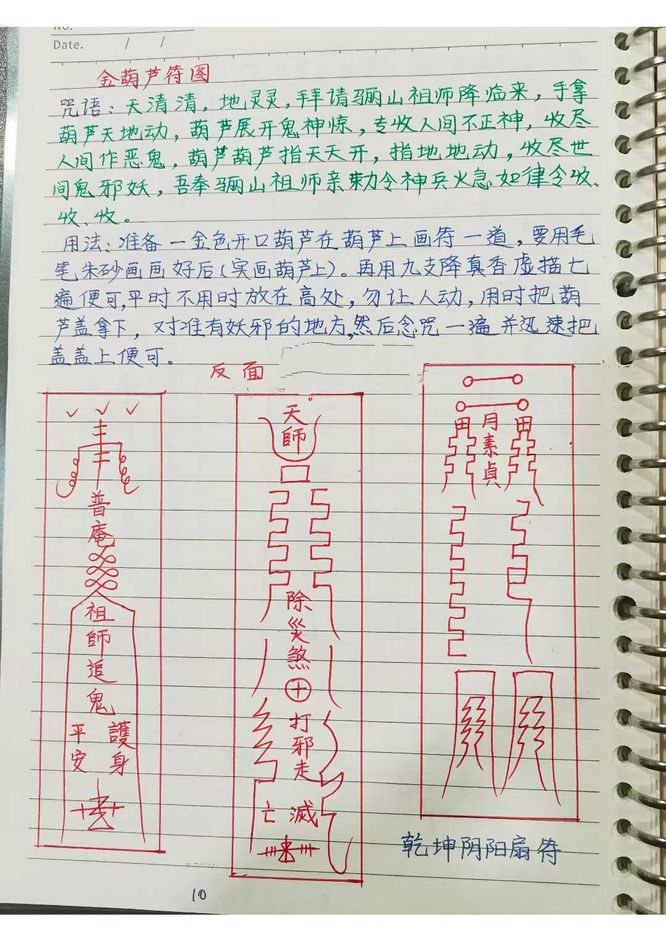 No.
Date. / /
金葫芦符图
咒语：天清清，地灵灵，拜请骊山祖师降临来，手拿
葫芦天地动，葫芦展开鬼神惊，专收人间不正神，收尽
人间作恶鬼，葫芦葫芦指天天开，指地地动，收尽世
间鬼邪妖，吾奉骊山祖师亲勅令神兵火急如律令收、
收、收。
用法：准备一金色开口葫芦在葫芦上画符一道，要用毛
笔朱砂画画好后（实画葫芦上）。再用九支降真香虚描七
遍便可，平时不用时放在高处，勿让人动，用时把葫
芦盖拿下，对准有妖邪的地方，然后念咒一遍并迅速把
盖盖上便可。
反面
普庵
祖師追鬼
護身
平安
天師
除災煞
打邪走
滅
亡
月素貞
田
田
乾坤阴阳扇符
10